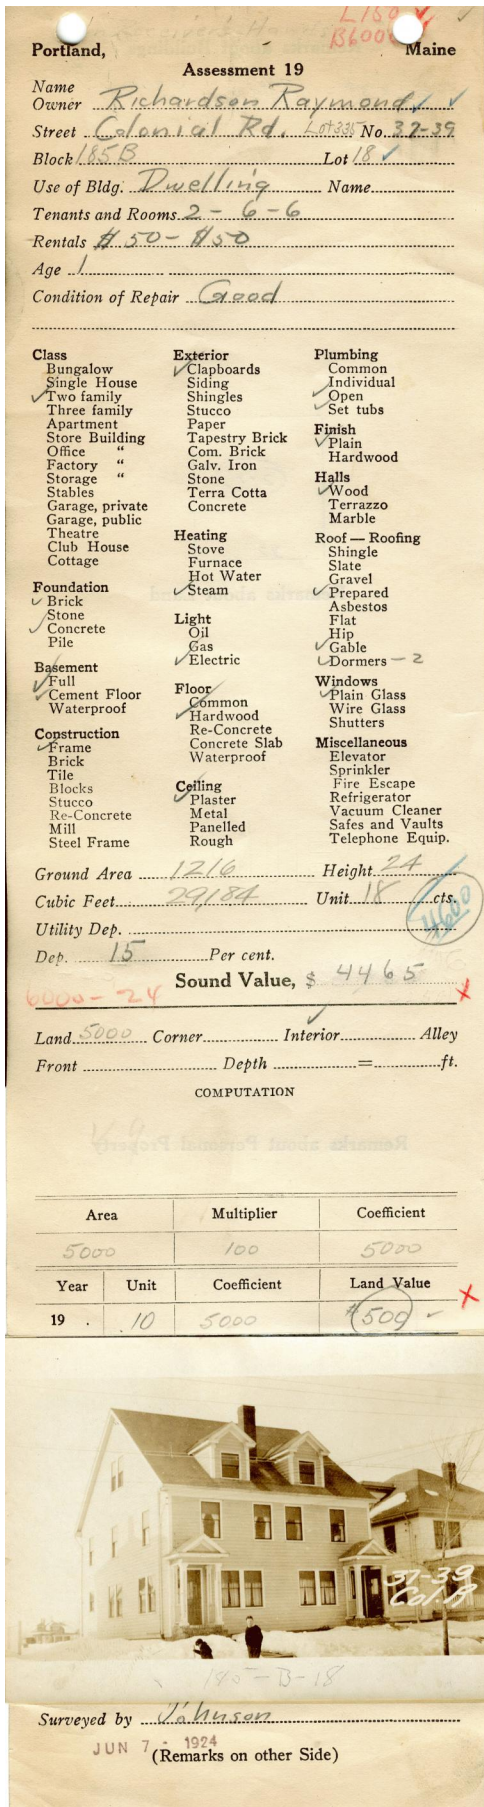 L150
B6000
Portland, Maine
Assessment 19
Name
Owner Richardson Raymond ✓ ✓
Street Colonial Rd. Lot 335 No. 37-39
Block 185B Lot 18 ✓
Use of Bldg. Dwelling Name
Tenants and Rooms 2 - 6 - 6
Rentals $50 - $50
Age 1
Condition of Repair Good
Class
Bungalow
Single House
✓ Two family
Three family
Apartment
Store Building
Office "
Factory "
Storage "
Stables
Garage, private
Garage, public
Theatre
Club House
Cottage
Foundation
✓ Brick
Stone
✓ Concrete
Pile
Basement
✓ Full
✓ Cement Floor
Waterproof
Construction
✓ Frame
Brick
Tile
Blocks
Stucco
Re-Concrete
Mill
Steel Frame
Exterior
✓ Clapboards
Siding
Shingles
Stucco
Paper
Tapestry Brick
Com. Brick
Galv. Iron
Stone
Terra Cotta
Concrete
Heating
Stove
Furnace
Hot Water
✓ Steam
Light
Oil
Gas
✓ Electric
Floor
Common
✓ Hardwood
Re-Concrete
Concrete Slab
Waterproof
Ceiling
✓ Plaster
Metal
Panelled
Rough
Plumbing
Common
✓ Individual
✓ Open
✓ Set tubs
Finish
✓ Plain
Hardwood
Halls
✓ Wood
Terrazzo
Marble
Roof — Roofing
Shingle
Slate
Gravel
✓ Prepared
Asbestos
Flat
Hip
✓ Gable
✓ Dormers - 2
Windows
✓ Plain Glass
Wire Glass
Shutters
Miscellaneous
Elevator
Sprinkler
Fire Escape
Refrigerator
Vacuum Cleaner
Safes and Vaults
Telephone Equip.
Ground Area 1216 Height 24
Cubic Feet 29184 Unit 18 cts.
4600
Utility Dep.
Dep. 15 Per cent.
Sound Value, $ 4465
6000 - 24 X
Land 5000 Corner Interior ✓ Alley
Front Depth = ft.
COMPUTATION
Area Multiplier Coefficient
5000 100 5000
Year Unit Coefficient Land Value
19 . .10 5000 $500 ✓ X
37-39
Col. R
185-B-18
Surveyed by Johnson
JUN 7 - 1924
(Remarks on other Side)